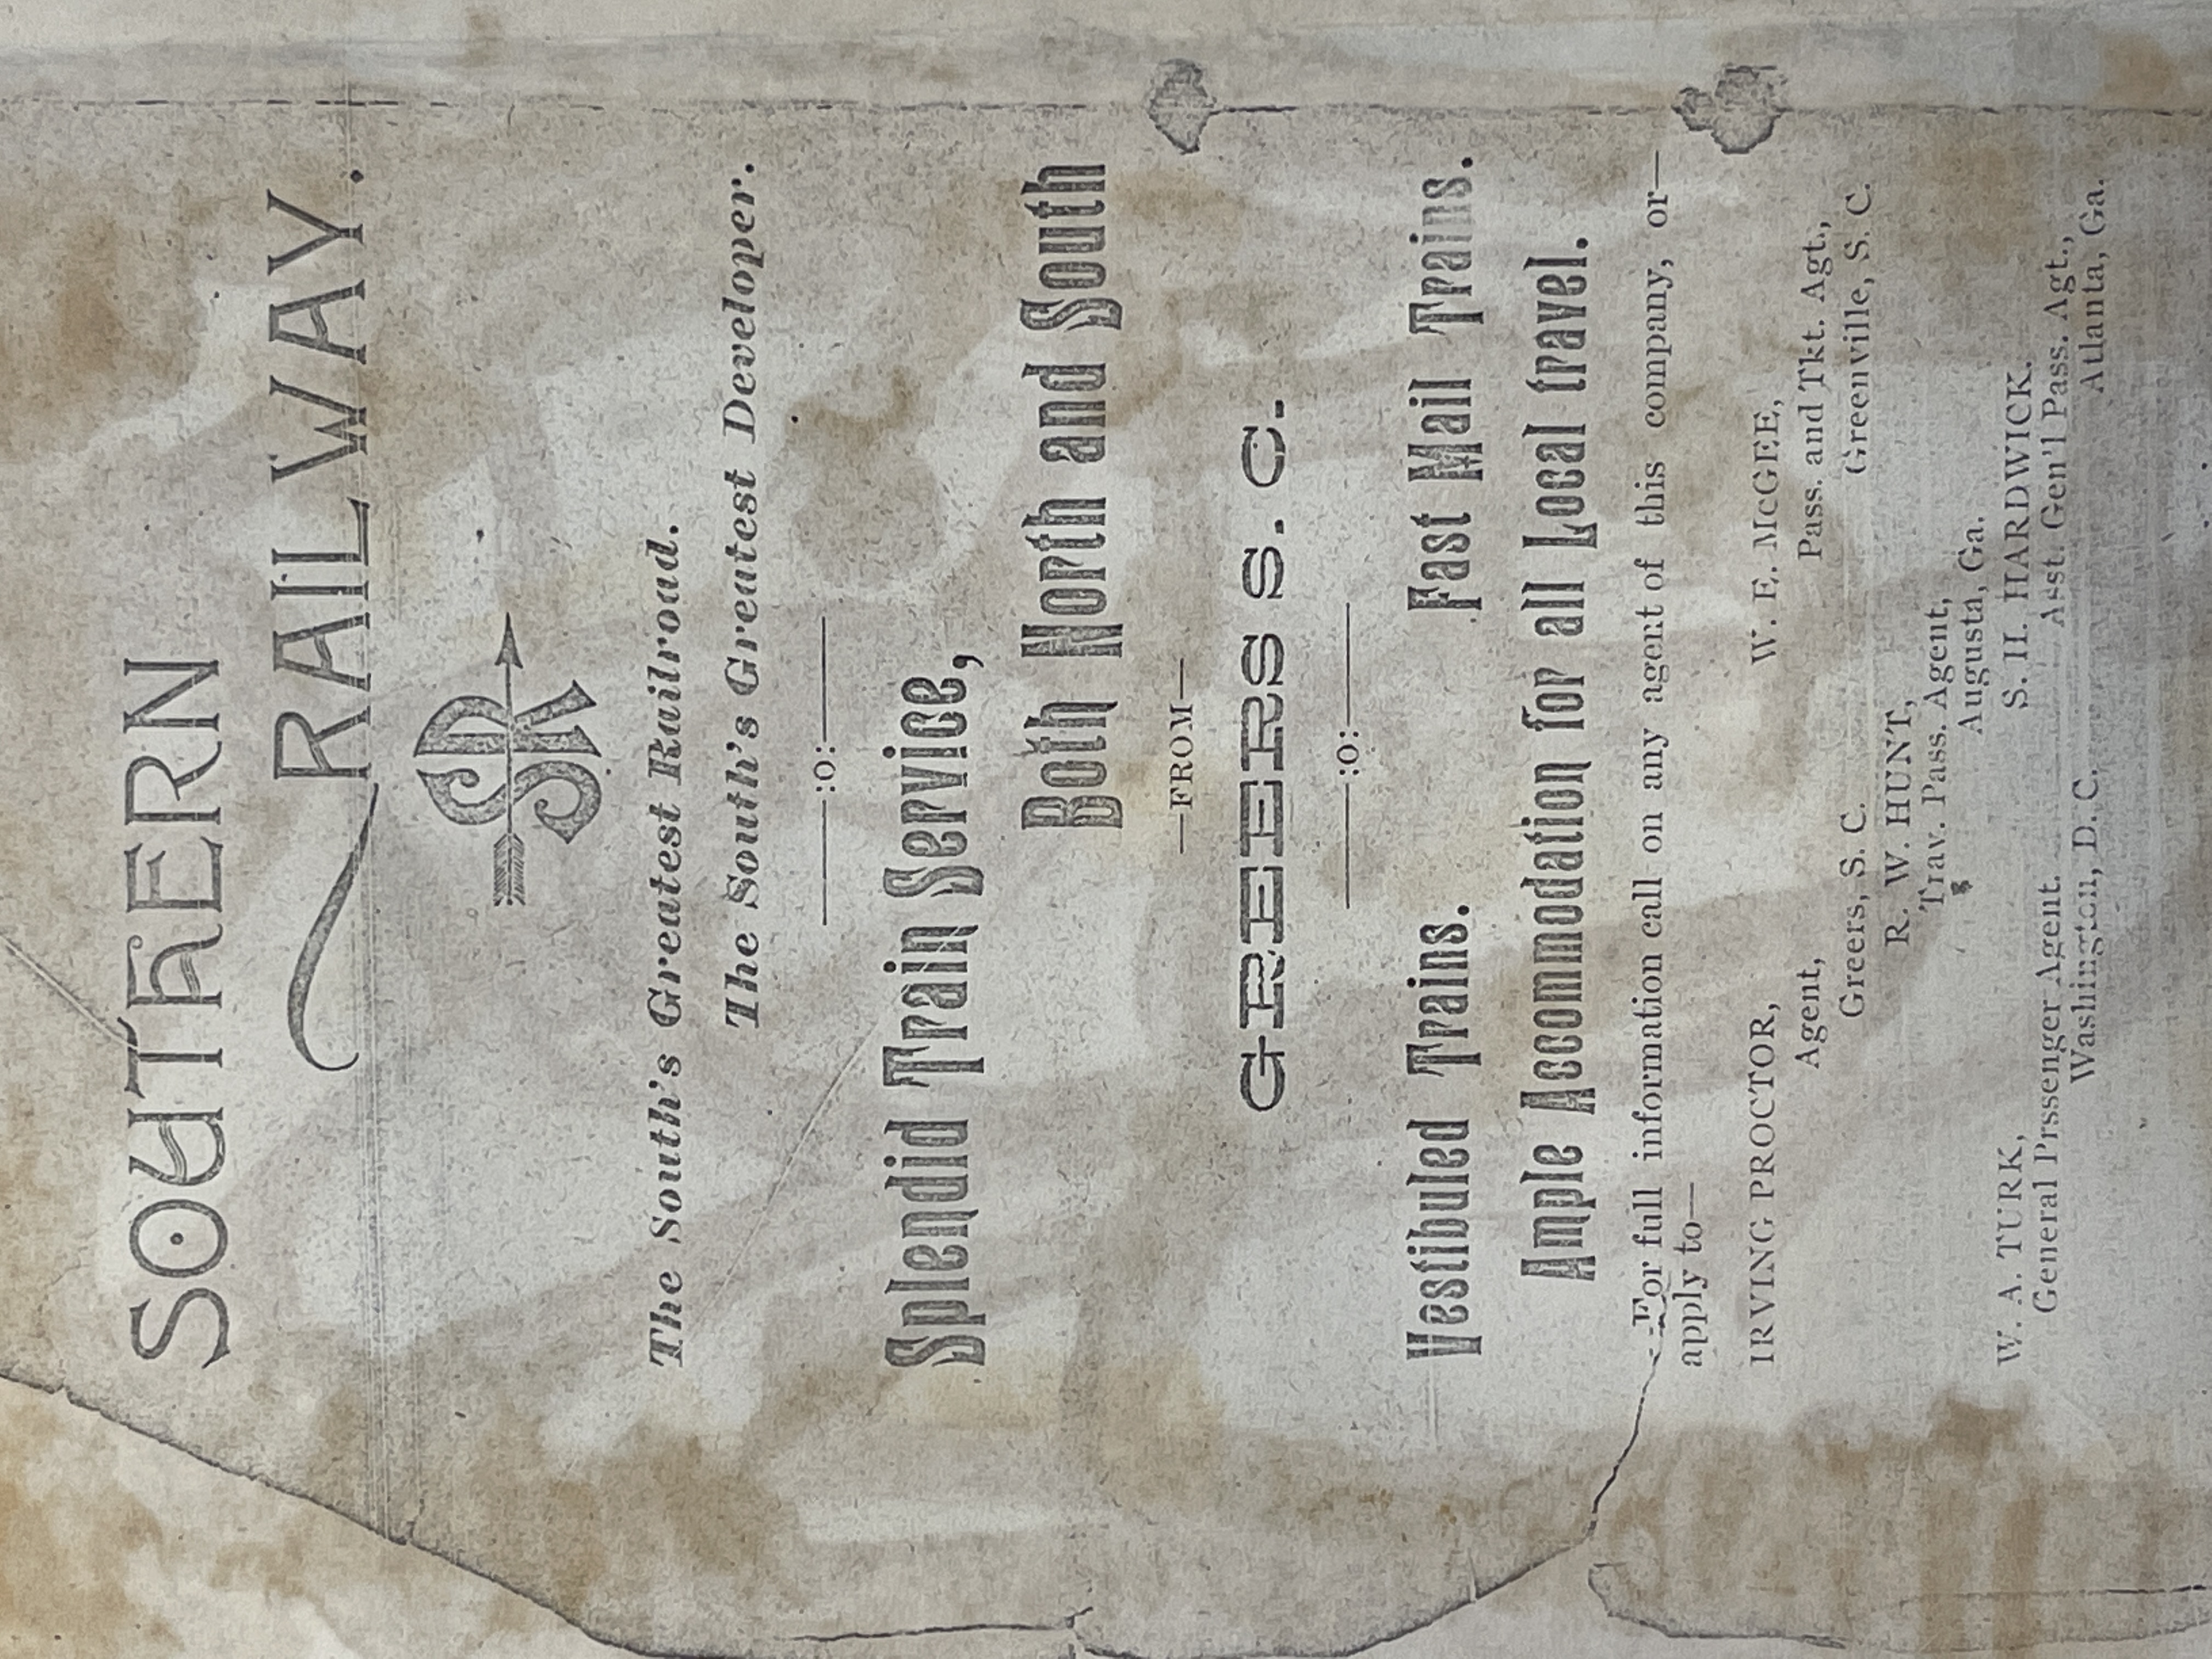 SOUTHERN
RAILWAY.
SR
The South's Greatest Railroad.
The South's Greatest Developer.
:o:
Splendid Train Service,
Both North and South
—FROM—
GREERS S. C.
:o:
Vestibuled Trains. Fast Mail Trains.
Ample Accommodation for all Local travel.
For full information call on any agent of this company, or—
apply to—
IRVING PROCTOR, W. E. McGEE,
Agent, Pass. and Tkt. Agt.,
Greers, S. C. Greenville, S. C.
R. W. HUNT,
Trav. Pass. Agent,
Augusta, Ga.
W. A. TURK, S. H. HARDWICK.
General Prssenger Agent. Asst. Gen'l Pass. Agt.,
Washington, D. C. Atlanta, Ga.